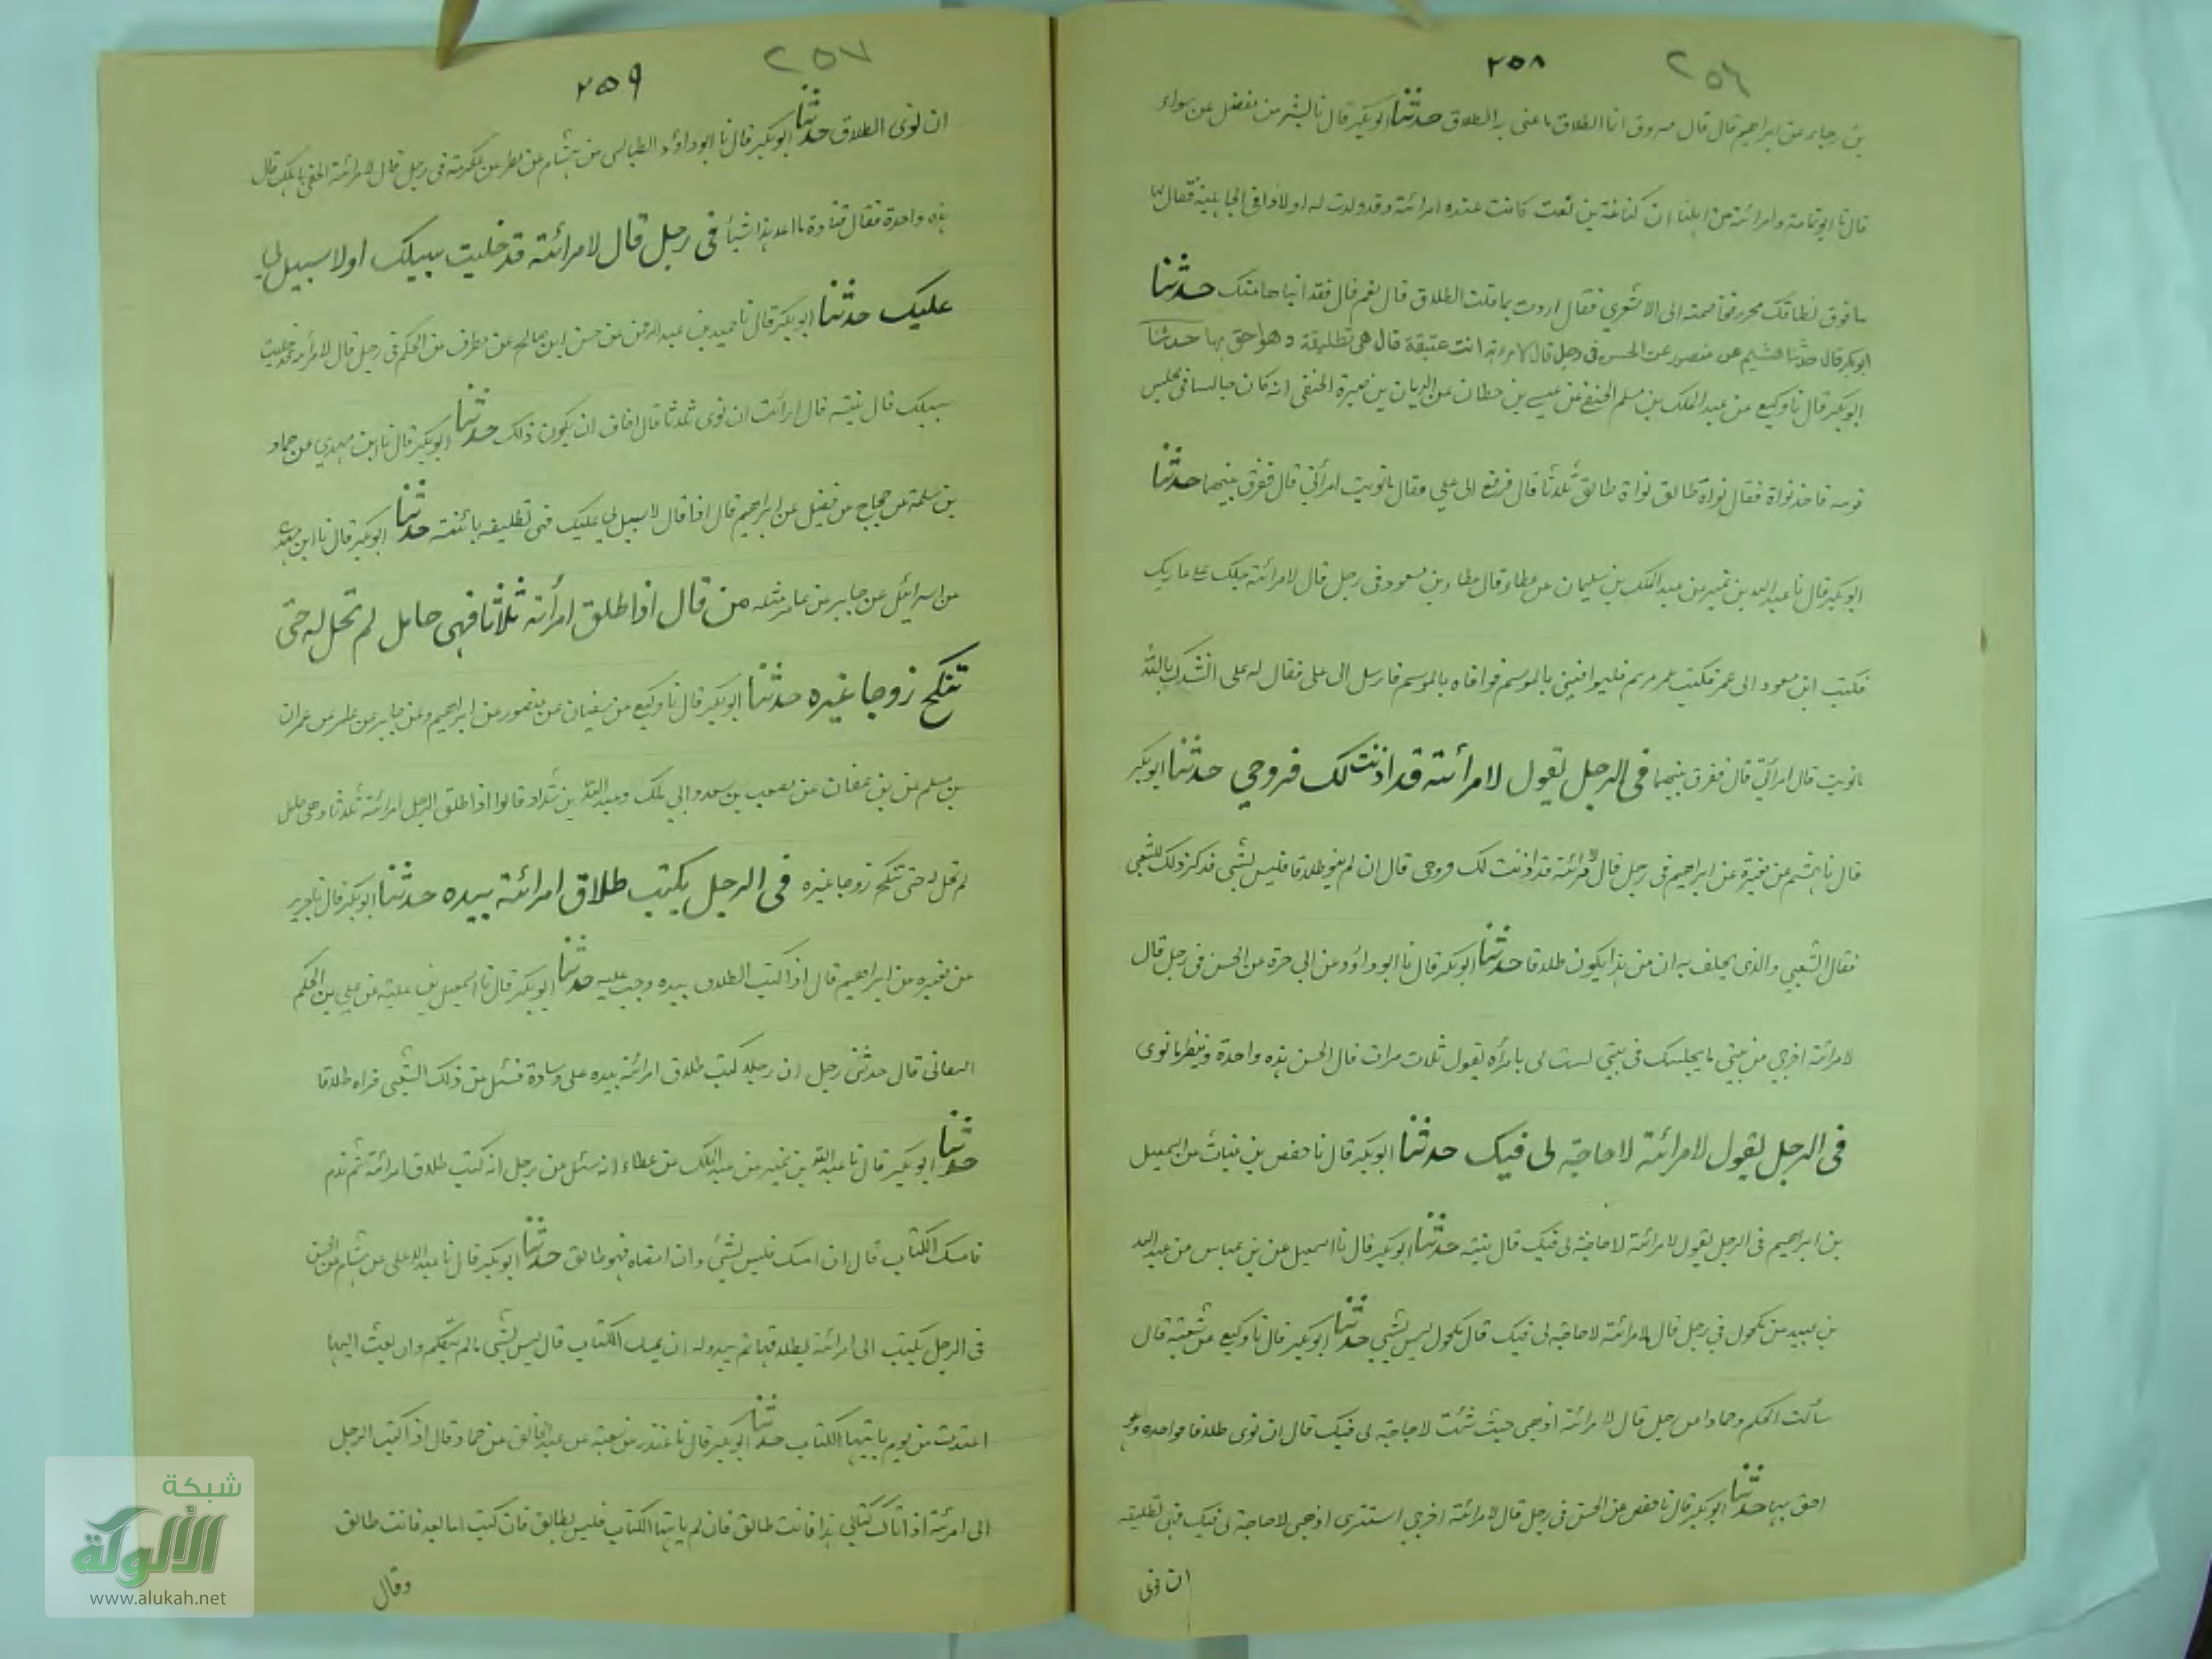 ٢٥٨ ٢٥٦
بن رجاء عن ابراهيم قال قال مسروق انما الطلاق ما عنى به الطلاق حدثنا ابوبكر قال نا بشر بن مفضل عن سواء
قال نا ابو ثمامة وامرائته من اهلنا ان كنانة بن نعت كانت عنده امرائته وقد ولدت له اولادا فى الجاهلية فقال لها
ما فوق نطاقك محرر فخاصمته الى الاشعري فقال اردت بما قلت الطلاق قال نعم قال فقد ابناها منك حدثنا
ابوبكر قال حدثنا هشيم عن منصور عن الحسن فى رجل قال لامرءته انت عتيقة قال هى تطليقة وهو احق بها حدثنا
ابوبكر قال نا وكيع عن عبد الملك بن مسلم الحنفي عن عيسى بن حطان عن الريان بن صبرة الحنفى انه كان جالسا فى مجلس
قومه فاخذ نواة فقال نواة طالق نواة طالق ثلاثا قال فرفع الى علي فقال ما نويت قال نويت امرأتي قال ففرق بينهما حدثنا
ابوبكر قال نا عبد الله بن نمير عن عبد الملك بن سليمان عن عطاء قال عطاء وبن مسعود فى رجل قال لامرائته حبلك على غاربك
فكتب ابن مسعود الى عمر فكتب عمر مرهم فليوافينى بالموسم فوافاه بالموسم فارسل الى على فقال له على انشدك بالله
ما نويت قال امرأتي قال ففرق بينهما فى الرجل يقول لامرائته قد اذنت لك فزوجي حدثنا ابوبكر
قال نا هشيم عن مغيرة عن ابراهيم فى رجل قال لامرائته قد اذنت لك فزوجى قال ان لم ينو طلاقا فليس بشى فذكر ذلك للشعبى
فقال الشعبي والذى يحلف به ان من هذا يكون طلاقا حدثنا ابوبكر قال نا ابوداؤد عن ابى حرة عن الحسن فى رجل قال
لامرائته اخرجي من بيتي ما يجلسك فى بيتي لست لى بامرأه يقول ثلاث مرات قال الحسن هذه واحدة وينظر ما نوى
فى الرجل يقول لامرائته لا حاجة لى فيك حدثنا ابوبكر قال نا حفص بن غياث عن اسمعيل
بن ابراهيم فى الرجل يقول لامرائته لا حاجة لى فيك قال نيته حدثنا ابوبكر قال نا اسمعيل عن بن عباس عن عبيد الله
بن عبيد عن مكحول في رجل قال لامرائته لا حاجة لى فيك قال مكحول ليس بشيي حدثنا ابوبكر قال نا وكيع عن شعبة قال
سألت الحكم وحمادا عن رجل قال لامرائته اذهبى حيث شئت لا حاجة لى فيك قال ان نوى طلاقا فواحده وهو
احق بها حدثنا ابوبكر قال نا حفص عن الحسن فى رجل قال لامرائته اخرجي استترى اذهبى لا حاجة لى فيك فهى تطليقه
ان نوى
٢٥٩ ٢٥٧
ان نوى الطلاق حدثنا ابوبكر قال نا ابوداؤد الطيالسى عن هشام عن مطر عن عكرمة فى رجل قال لامرائته الحقى باهلك قال
هذه واحدة فقال قتادة ما اعد هذا شيأ فى رجل قال لامرائته قد خليت سبيلك او لا سبيل لي
عليك حدثنا ابوبكر قال نا حميد بن عبد الرحمن عن حسن ابن صالح عن مطرف عن الحكم في رجل قال لامرأته قد خليت
سبيلك قال نيته قال ارائت ان نوى ثلاثا قال اخاف ان يكون ذلك حدثنا ابوبكر قال نا ابن مهدي عن حماد
بن سلمة عن حجاج عن فضيل عن ابراهيم قال اذا قال لا سبيل لي عليك فهى تطليقه بائنته حدثنا ابوبكر قال نا ابن مهدى
عن اسرائيل عن جابر عن عامر مثله من قال اذا طلق امرأته ثلاثا فهى حامل لم تحل له حتى
تنكح زوجا غيره حدثنا ابوبكر قال نا وكيع عن سفيان عن منصور عن ابراهيم وعن جابر عن عامر عن عمران
بن مسلم عن بن عفان عن مصعب بن سعد وابي ملك وعبد الله بن شداد قالوا اذا طلق الرجل امرائته ثلاثا وهى حامل
لم تحل له حتى تنكح زوجا غيره فى الرجل يكتب طلاق امرائته بيده حدثنا ابوبكر قال نا جرير
عن مغيره عن ابراهيم قال اذا كتب الطلاق بيده وجب عليه حدثنا ابوبكر قال نا اسمعيل بن علية عن علي بن الحكم
البنانى قال حدثنى رجل ان رجلا كتب طلاق امرائته بيده على وسادة فسئل عن ذلك الشعبى فراه طلاقا
حدثنا ابوبكر قال نا عبد الله بن نمير عن عبد الملك عن عطاء انه سئل عن رجل انه كتب طلاق امرائته ثم ندم
فامسك الكتاب قال ان امسك فليس بشيئ وان امضاه فهو طالق حدثنا ابوبكر قال نا عبد الاعلى عن هشام عن الحسن
فى الرجل يكتب الى امرائته بطلاقها ثم يبدو له ان يمسك الكتاب قال ليس بشى ما لم يتكلم وان بعث اليها
اعتدت من يوم ياتيها الكتاب حدثنا ابوبكر قال نا غندر عن شعبة عن عبد الخالق عن حماد قال اذا كتب الرجل
الى امرئته اذا اتاك كتابى هذا فانت طالق فان لم ياتها الكتاب فليس بطالق فان كتب اما بعد فانت طالق
وقال
شبكة
الألوكة
www.alukah.net